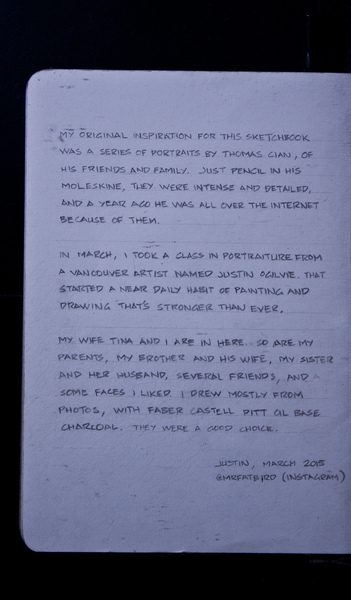 MY ORIGINAL INSPIRATION FOR THIS SKETCHBOOK
WAS A SERIES OF PORTRAITS BY THOMAS CIAN, OF
HIS FRIENDS AND FAMILY. JUST PENCIL IN HIS
MOLESKINE, THEY WERE INTENSE AND DETAILED,
AND A YEAR AGO HE WAS ALL OVER THE INTERNET
BECAUSE OF THEM.
IN MARCH, I TOOK A CLASS IN PORTRAITURE FROM
A VANCOUVER ARTIST NAMED JUSTIN OGILVIE. THAT
STARTED A NEAR DAILY HABIT OF PAINTING AND
DRAWING THAT'S STRONGER THAN EVER.
MY WIFE TINA AND I ARE IN HERE. SO ARE MY
PARENTS, MY BROTHER AND HIS WIFE, MY SISTER
AND HER HUSBAND, SEVERAL FRIENDS, AND
SOME FACES I LIKED. I DREW MOSTLY FROM
PHOTOS, WITH FABER CASTELL PITT OIL BASE
CHARCOAL. THEY WERE A GOOD CHOICE.
JUSTIN, MARCH 2015
@MRFATBIRD (INSTAGRAM)